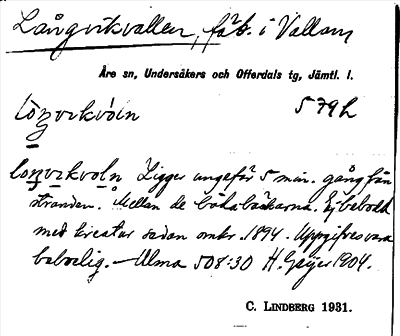 Långvikvallen, fäb. i Vallom
Åre sn, Undersåkers och Offerdals tg, Jämtl. l.
579h
Ligger ungefär 5 min. gång från
stranden. Mellan de båda bäckarna. Ej bebodd
med kreatur sedan omkr. 1894. Uppgifves vara
beboelig. — Ulma 508:30 H. Geijer 1904.
C. LINDBERG 1931.